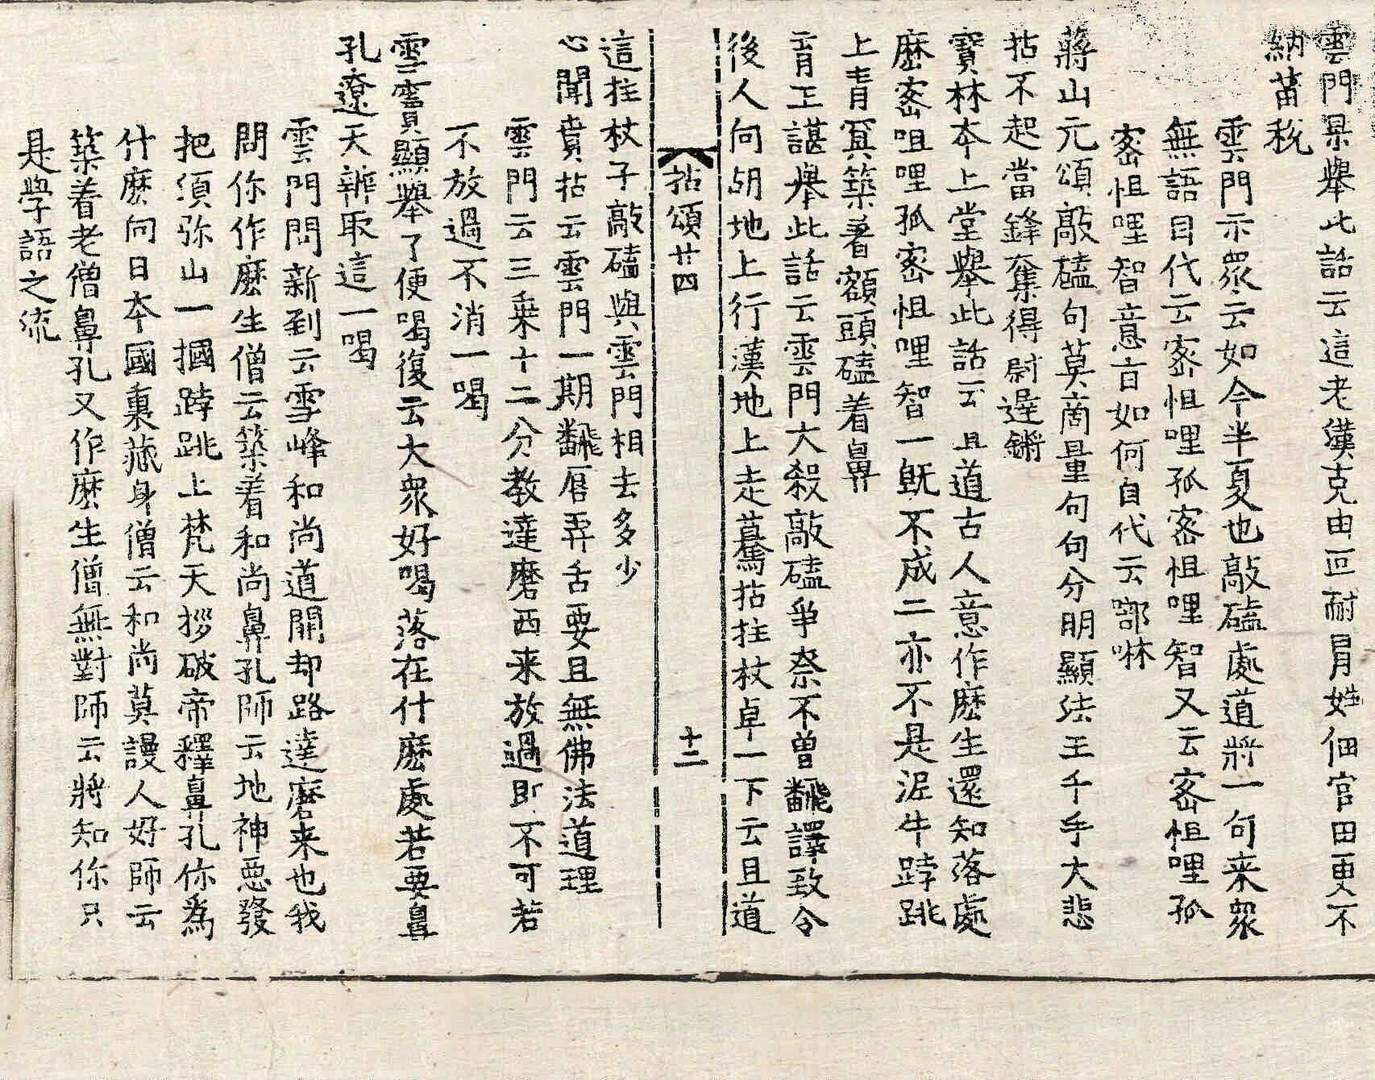 雲門杲舉此話云這老漢克由叵耐冐姓佃官田更不
納苗稅
雲門示眾云如今半夏也敲磕處道將一句来眾
無語自代云宻怛哩孤宻怛哩智又云宻怛哩孤
宻怛哩智意旨如何自代云㖿㖿
蔣山元頌敲磕句莫商量句句分明顯法王千手大悲
拈不起當鋒奪得尉遲鏘
寳林本上堂舉此話云且道古人意作麽生還知落處
麽宻咀哩孤宻怛哩智一旣不成二亦不是泥牛𨁝跳
上青冥築著額頭磕着鼻
育王諶舉此話云雲門大殺敲磕爭奈不曾飜譯致令
後人向胡地上行漢地上走驀拈拄杖卓一下云且道
拈頌廿四
十二
這拄杖子敲磕與雲門相去多少
心聞賁拈云雲門一期飜唇弄舌要且無佛法道理
雲門云三乗十二分教達磨西来放過即不可若
不放過不消一喝
雪竇顯舉了便喝復云大眾好喝落在什麽處若要鼻
孔遼天辨取這一喝
雲門問新到云雪峰和尚道開却路達磨来也我
問你作麽生僧云築着和尚鼻孔師云地神惡發
把須弥山一摑𨁝跳上梵天拶破帝釋鼻孔你為
什麽向日本國裏藏身僧云和尚莫謾人好師云
築着老僧鼻孔又作麽生僧無對師云將知你只
是學語之流